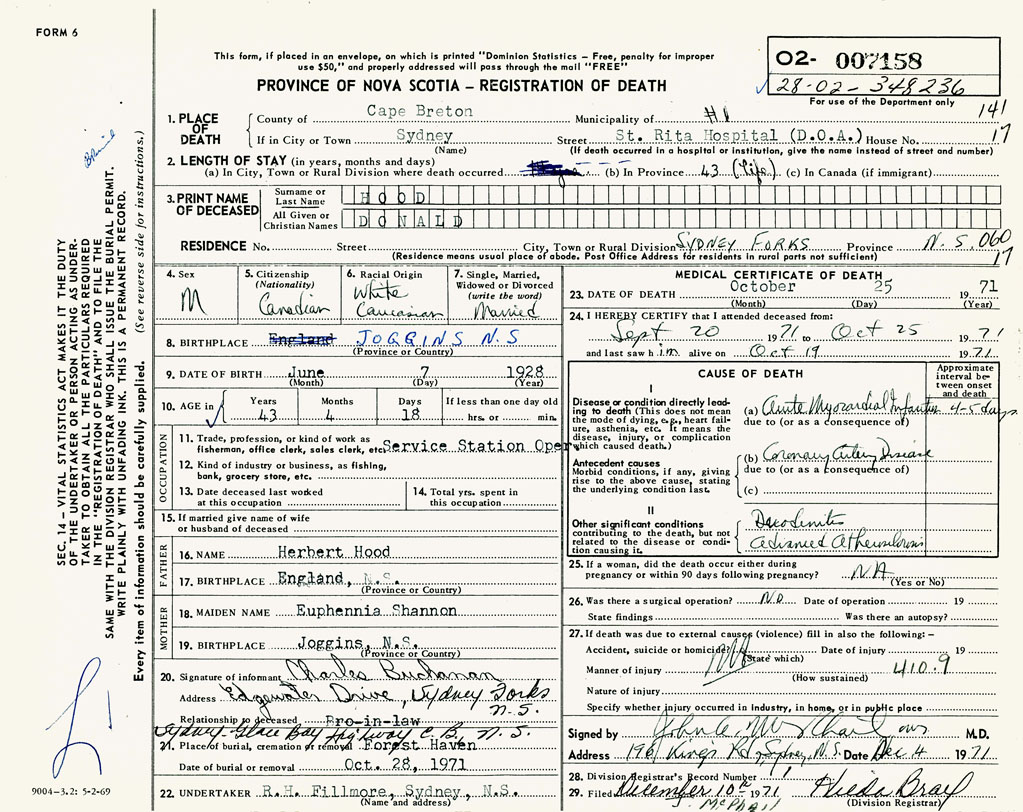 FORM 6
This form, if placed in an envelope, on which is printed "Dominion Statistics – Free, penalty for improper
use $50," and properly addressed will pass through the mail "FREE"
PROVINCE OF NOVA SCOTIA – REGISTRATION OF DEATH
02- 007158
28-02-348236
For use of the Department only
141
1. PLACE OF DEATH
County of Cape Breton Municipality of #1
If in City or Town Sydney Street St. Rita Hospital (D.O.A.) House No. 17
(Name) (If death occurred in a hospital or institution, give the name instead of street and number)
2. LENGTH OF STAY (in years, months and days)
(a) In City, Town or Rural Division where death occurred (b) In Province 43 (Life) (c) In Canada (if immigrant)
3. PRINT NAME OF DECEASED
Surname or Last Name HOOD
All Given or Christian Names DONALD
RESIDENCE No. Street City, Town or Rural Division SYDNEY FORKS Province N.S. 060
(Residence means usual place of abode. Post Office Address for residents in rural parts not sufficient) 17
4. Sex M
5. Citizenship (Nationality) Canadian
6. Racial Origin White Caucasian
7. Single, Married, Widowed or Divorced (write the word) Married
8. BIRTHPLACE England JOGGINS N.S
(Province or Country)
9. DATE OF BIRTH June 7 1928
(Month) (Day) (Year)
10. AGE in Years Months Days If less than one day old
43 4 18 hrs. or min.
OCCUPATION
11. Trade, profession, or kind of work as
fisherman, office clerk, sales clerk, etc. Service Station Oper
12. Kind of industry or business, as fishing,
bank, grocery store, etc.
13. Date deceased last worked
at this occupation
14. Total yrs. spent in
this occupation
15. If married give name of wife
or husband of deceased
FATHER
16. NAME Herbert Hood
17. BIRTHPLACE England, N.S.
(Province or Country)
MOTHER
18. MAIDEN NAME Euphennia Shannon
19. BIRTHPLACE Joggins, N.S.
(Province or Country)
20. Signature of informant Charles Buchanan
Address Edgewater Drive, Sydney Forks
N.S.
Relationship to deceased Bro-in-law
Sydney-Glace Bay Highway C.B., N.S.
21. Place of burial, cremation or removal Forest Haven
Date of burial or removal Oct. 28, 1971
22. UNDERTAKER R.H. Fillmore, Sydney, N.S.
(Name and address)
MEDICAL CERTIFICATE OF DEATH
23. DATE OF DEATH October 25 1971
(Month) (Day) (Year)
24. I HEREBY CERTIFY that I attended deceased from:
Sept 20 1971 to Oct 25 1971
and last saw him alive on Oct 19 1971
CAUSE OF DEATH
Approximate interval between onset and death
I
Disease or condition directly leading
to death (This does not mean
the mode of dying, e.g., heart failure,
asthenia, etc. It means the
disease, injury, or complication
which caused death.)
(a) Acute Myocardial Infarction 4-5 days
due to (or as a consequence of)
Antecedent causes
Morbid conditions, if any, giving
rise to the above cause, stating
the underlying condition last.
(b) Coronary Artery Disease
due to (or as a consequence of)
(c)
II
Other significant conditions
contributing to the death, but not
related to the disease or condition
causing it.
advanced Atherosclerosis
25. If a woman, did the death occur either during
pregnancy or within 90 days following pregnancy? NA
(Yes or No)
26. Was there a surgical operation? NO Date of operation 19
State findings Was there an autopsy?
27. If death was due to external causes (violence) fill in also the following: –
Accident, suicide or homicide? Date of injury 19
(State which)
Manner of injury 410.9
(How sustained)
Nature of injury
Specify whether injury occurred in industry, in home, or in public place
Signed by M.D.
Address 196 Kings Rd, Sydney, N.S. Date Dec 4 1971
28. Division Registrar's Record Number
29. Filed December 10th 1971 Hilda Bray
(Division Registrar)
SEC. 14 – VITAL STATISTICS ACT MAKES IT THE DUTY
OF THE UNDERTAKER OR PERSON ACTING AS UNDERTAKER
TO OBTAIN ALL THE PARTICULARS REQUIRED
IN THE "REGISTRATION OF DEATH" AND TO FILE THE
SAME WITH THE DIVISION REGISTRAR WHO SHALL ISSUE THE BURIAL PERMIT.
WRITE PLAINLY WITH UNFADING INK. THIS IS A PERMANENT RECORD.
Every item of information should be carefully supplied. (See reverse side for instructions.)
9004-3.2: 5-2-69